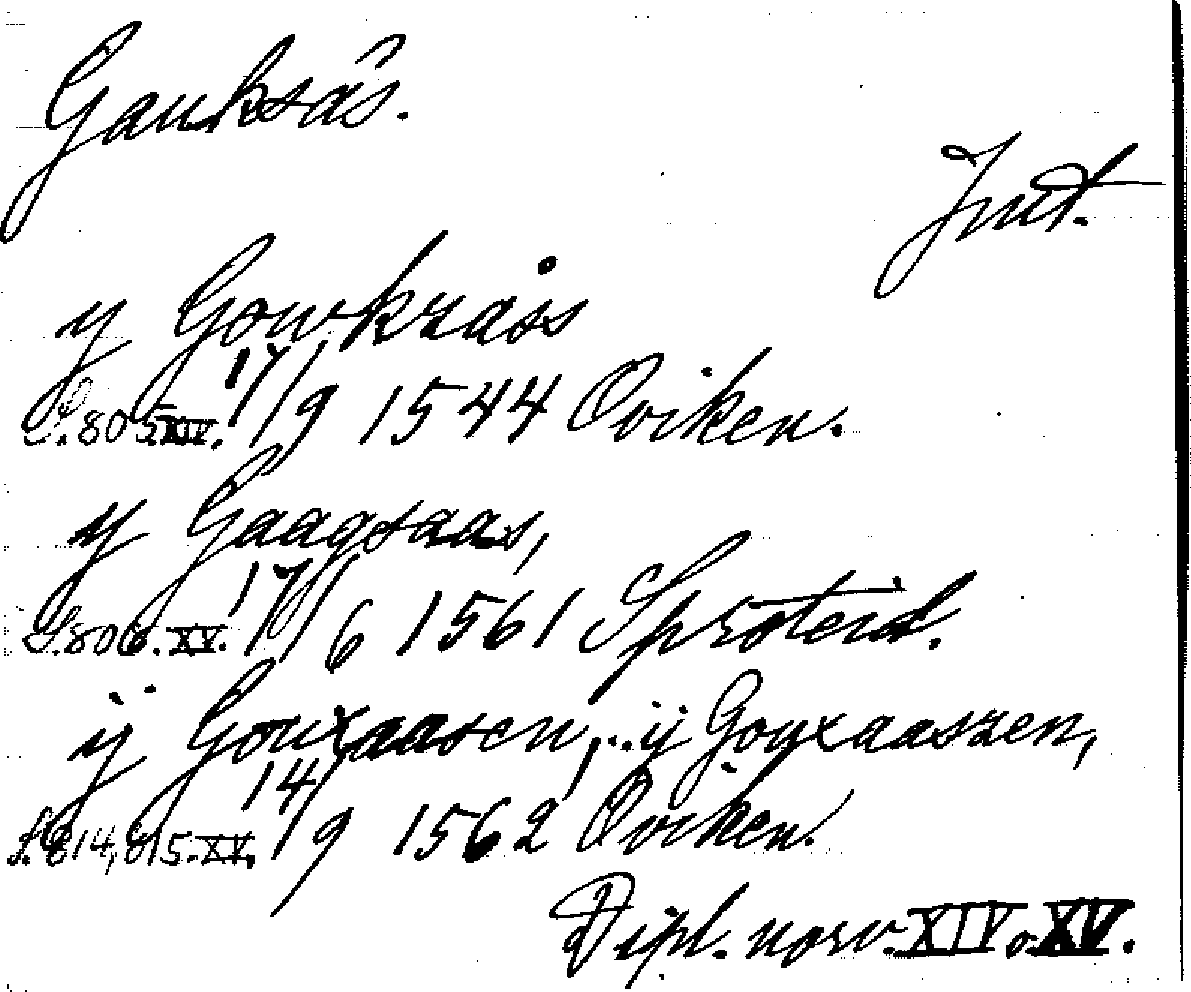 Gauksås.
Jmt.
y Gowkråss
S. 805 XIV. 17/9 1544 Oviken.
y Gaagsaas,
S. 806. XV. 17/6 1561 Sproteid.
ÿ Gouxaasen, ÿ Gouxaaszen,
S. 814, 815. XV. 14/9 1562 Oviken.
Dipl. norv. XIV o. XV.